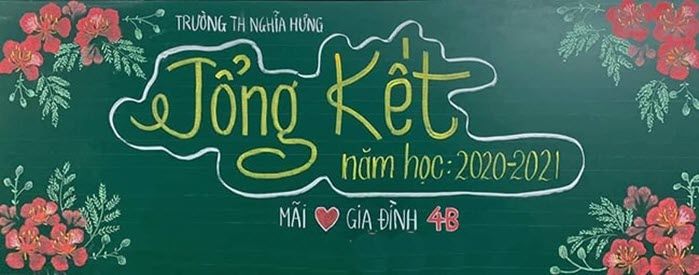 TRƯỜNG TH NGHĨA HƯNG
Tổng Kết
năm học: 2020-2021
MÃI ❤ GIA ĐÌNH 4B